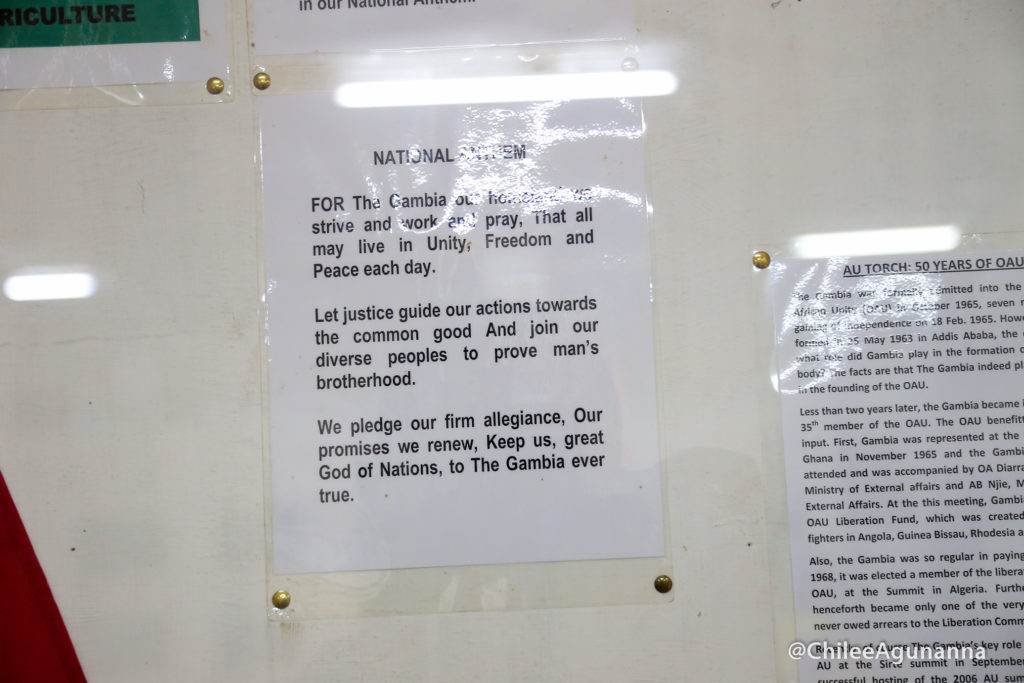 RICULTURE
in our National Anthem.
NATIONAL ANTHEM
FOR The Gambia our homeland we
strive and work and pray, That all
may live in Unity, Freedom and
Peace each day.
Let justice guide our actions towards
the common good And join our
diverse peoples to prove man's
brotherhood.
We pledge our firm allegiance, Our
promises we renew, Keep us, great
God of Nations, to The Gambia ever
true.
AU TORCH: 50 YEARS OF OAU
The Gambia was formally admitted into the
African Unity (OAU) in October 1965, seven
gaining of independence on 18 Feb. 1965. Howe
formed in 25 May 1963 in Addis Ababa, the
what role did Gambia play in the formation o
body? The facts are that The Gambia indeed pl
in the founding of the OAU.
Less than two years later, the Gambia became
35th member of the OAU. The OAU benefitt
input. First, Gambia was represented at the
Ghana in November 1965 and the Gambi
attended and was accompanied by OA Diarra
Ministry of External affairs and AB Njie, M
External Affairs. At the this meeting, Gambi
OAU Liberation Fund, which was created
fighters in Angola, Guinea Bissau, Rhodesia a
Also, the Gambia was so regular in paying
1968, it was elected a member of the libera
OAU, at the Summit in Algeria. Furthe
henceforth became only one of the very
never owed arrears to the Liberation Comm
of course The Gambia's key role
AU at the Sirte summit in September
successful hosting of the 2006 AU sum
@ChileeAgunanna